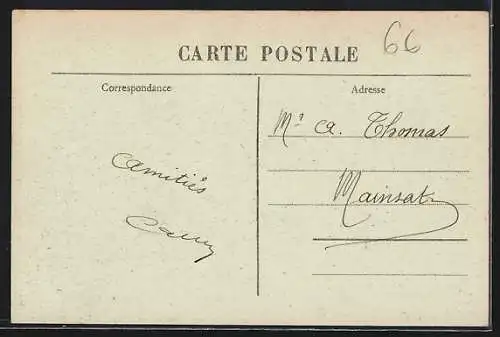 66
CARTE POSTALE
Correspondance
Adresse
Amitiés
Mr A. Thomas
Mainsat